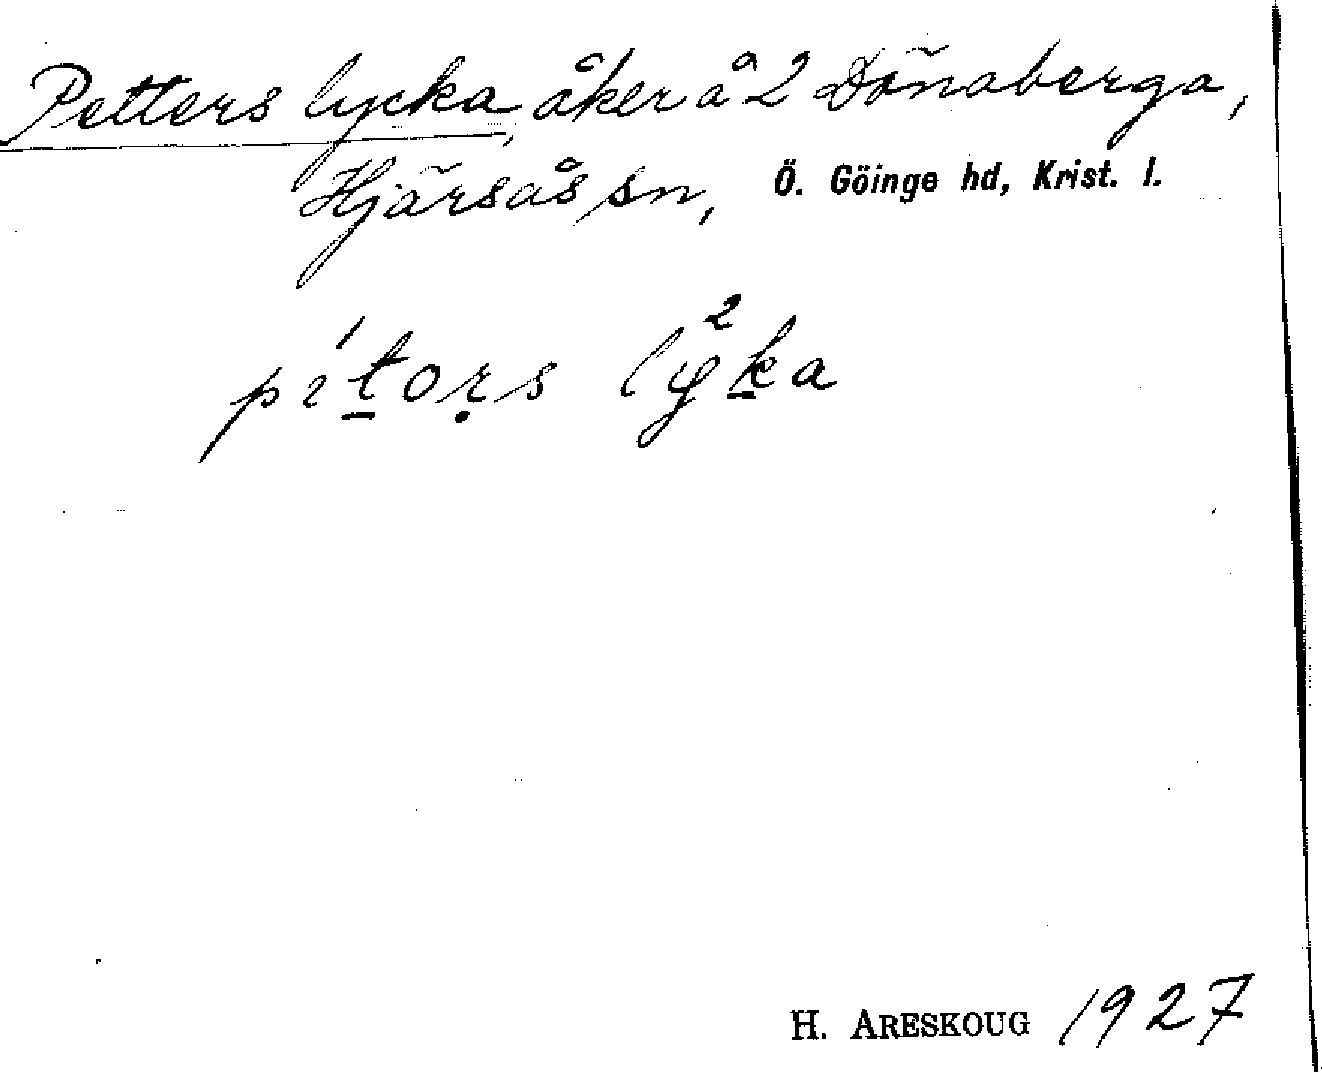 Petters lycka, åker å 2 Dönaberga,
Hjärsås sn, Ö. Göinge hd, Krist. l.
pítọṛs ly²ka
H. ARESKOUG 1927